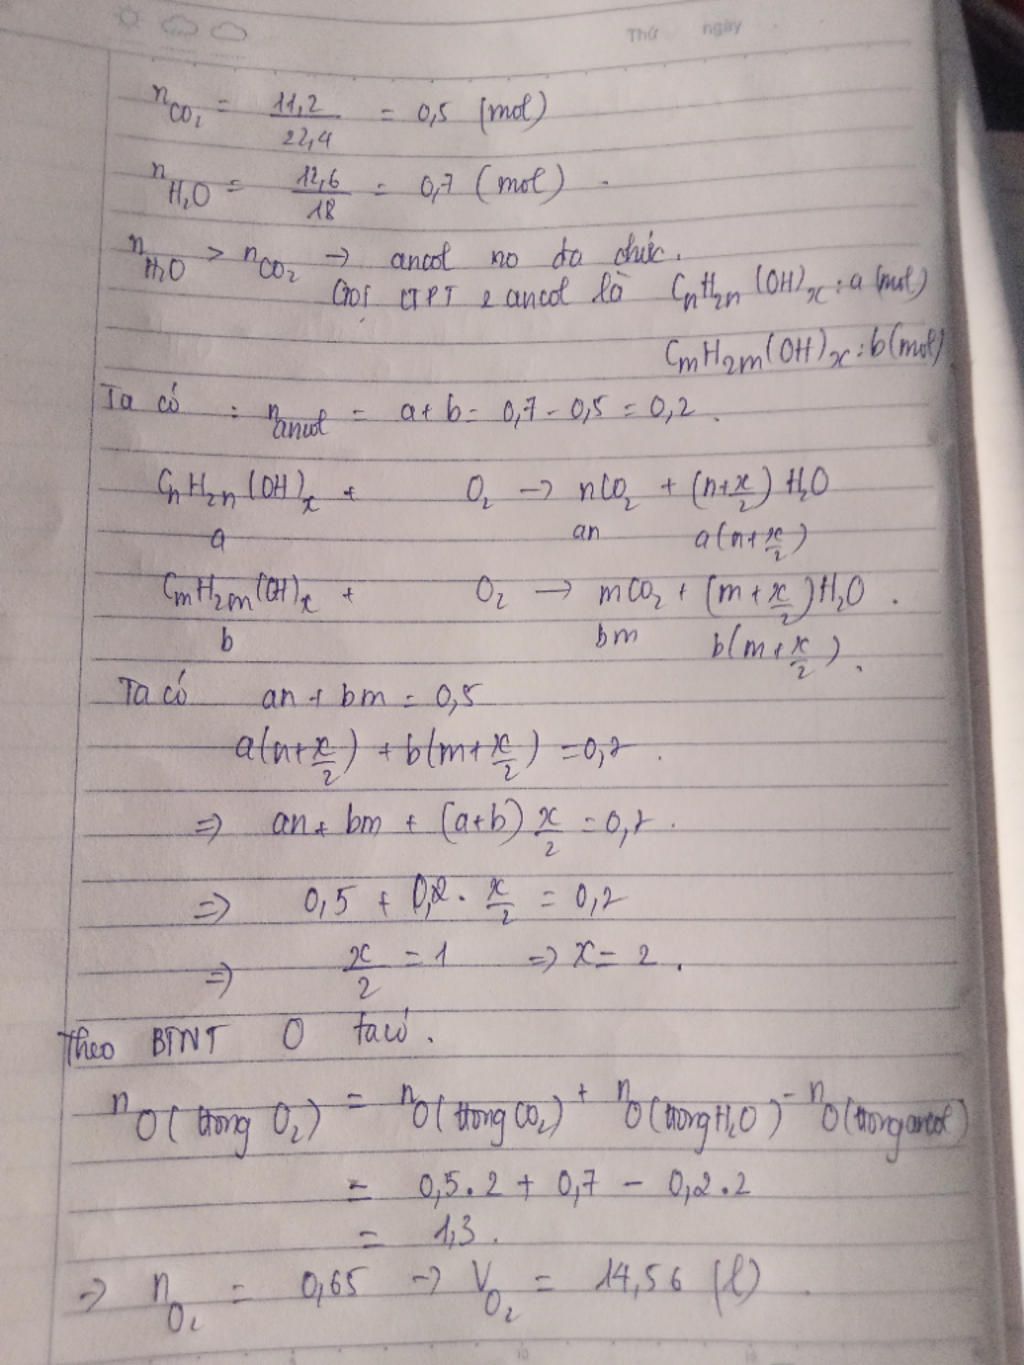 Thứ ngày
n_CO₂ = 11,2/22,4 = 0,5 (mol)
n_H₂O = 12,6/18 = 0,7 (mol).
n_H₂O > n_CO₂ → ancol no đa chức.
Gọi CTPT 2 ancol là CₙH₂ₙ(OH)ₓ : a (mol)
CₘH₂ₘ(OH)ₓ : b (mol)
Ta có : n_ancol = a+b = 0,7 - 0,5 = 0,2.
CₙH₂ₙ(OH)ₓ + O₂ → nCO₂ + (n+x/2) H₂O
a an a(n+x/2)
CₘH₂ₘ(OH)ₓ + O₂ → mCO₂ + (m+x/2)H₂O.
b bm b(m+x/2).
Ta có an + bm = 0,5
a(n+x/2) + b(m+x/2) = 0,7.
=> an + bm + (a+b) x/2 = 0,7.
=> 0,5 + 0,2. x/2 = 0,7
=> x/2 = 1 => x = 2.
Theo BTNT O ta có.
n_O(trong O₂) = n_O(trong CO₂) + n_O(trong H₂O) - n_O(trong ancol)
= 0,5.2 + 0,7 - 0,2.2
= 1,3.
=> n_O₂ = 0,65 → V_O₂ = 14,56 (l).